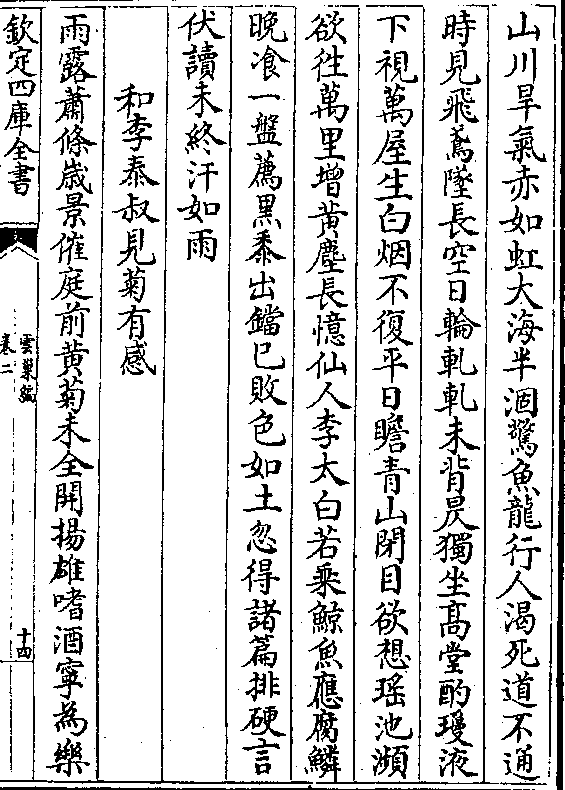 山川旱氣赤如虹大海半涸驚魚龍行人渴死道不通
時見飛鳶墜長空日輪軋軋未背昃獨坐髙堂酌瓊液
下視萬屋生白烟不復平日瞻青山閉目欲想瑶池瀕
欲徃萬里增黄塵長憶仙人李太白若乘鯨魚應腐鱗
晚飡一盤薦黒黍出鐺已敗色如土忽得諸篇排硬言
伏讀未終汗如雨
和李泰叔見菊有感
雨露蕭條嵗景催庭前黄菊未全開揚雄嗜酒寧為樂
欽定四庫全書
雲巢編
卷二
十四